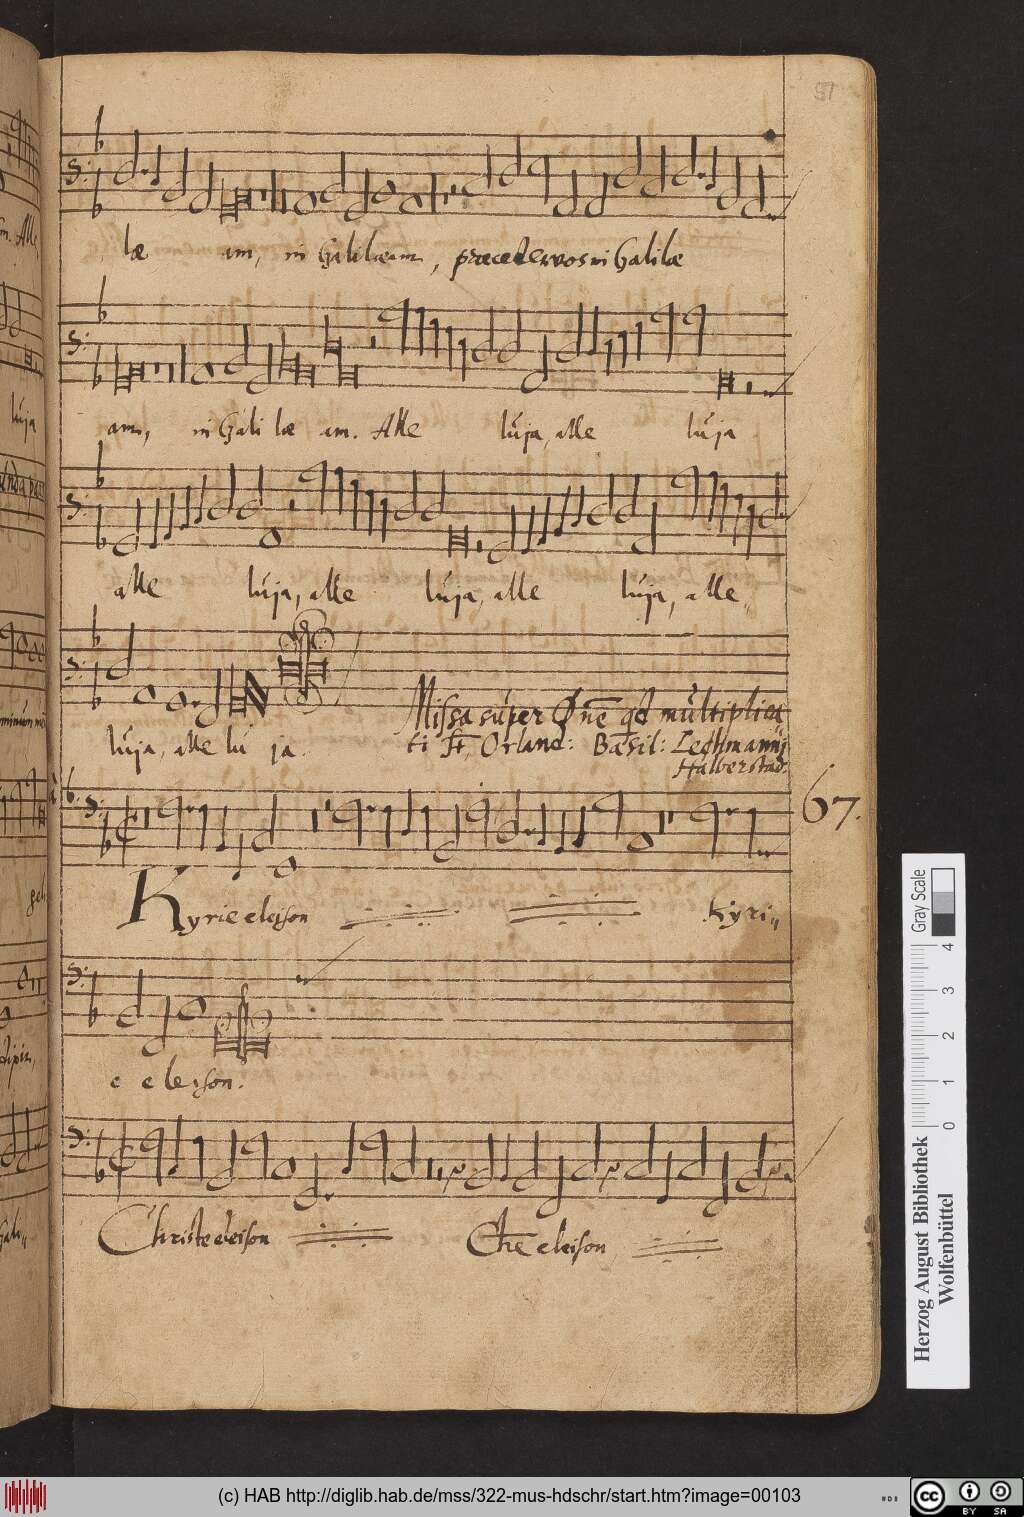 51
læ am, in Galilæam, præcedet vos in Galilæ
am, in Gali læ am. Alle luja, alle luja
alle luja, alle luja, alle luja, alle
luja, alle lu ja.
Missa super Dne qd multiplica
ti Orland: Basil: Lechmannj
Halberstad.
67.
Kyrie eleison Kyri
e eleison.
Christe eleison Chre eleison
luja
Gray Scale
0 1 2 3 4
Herzog August Bibliothek
Wolfenbüttel
(c) HAB http://diglib.hab.de/mss/322-mus-hdschr/start.htm?image=00103
cc BY SA